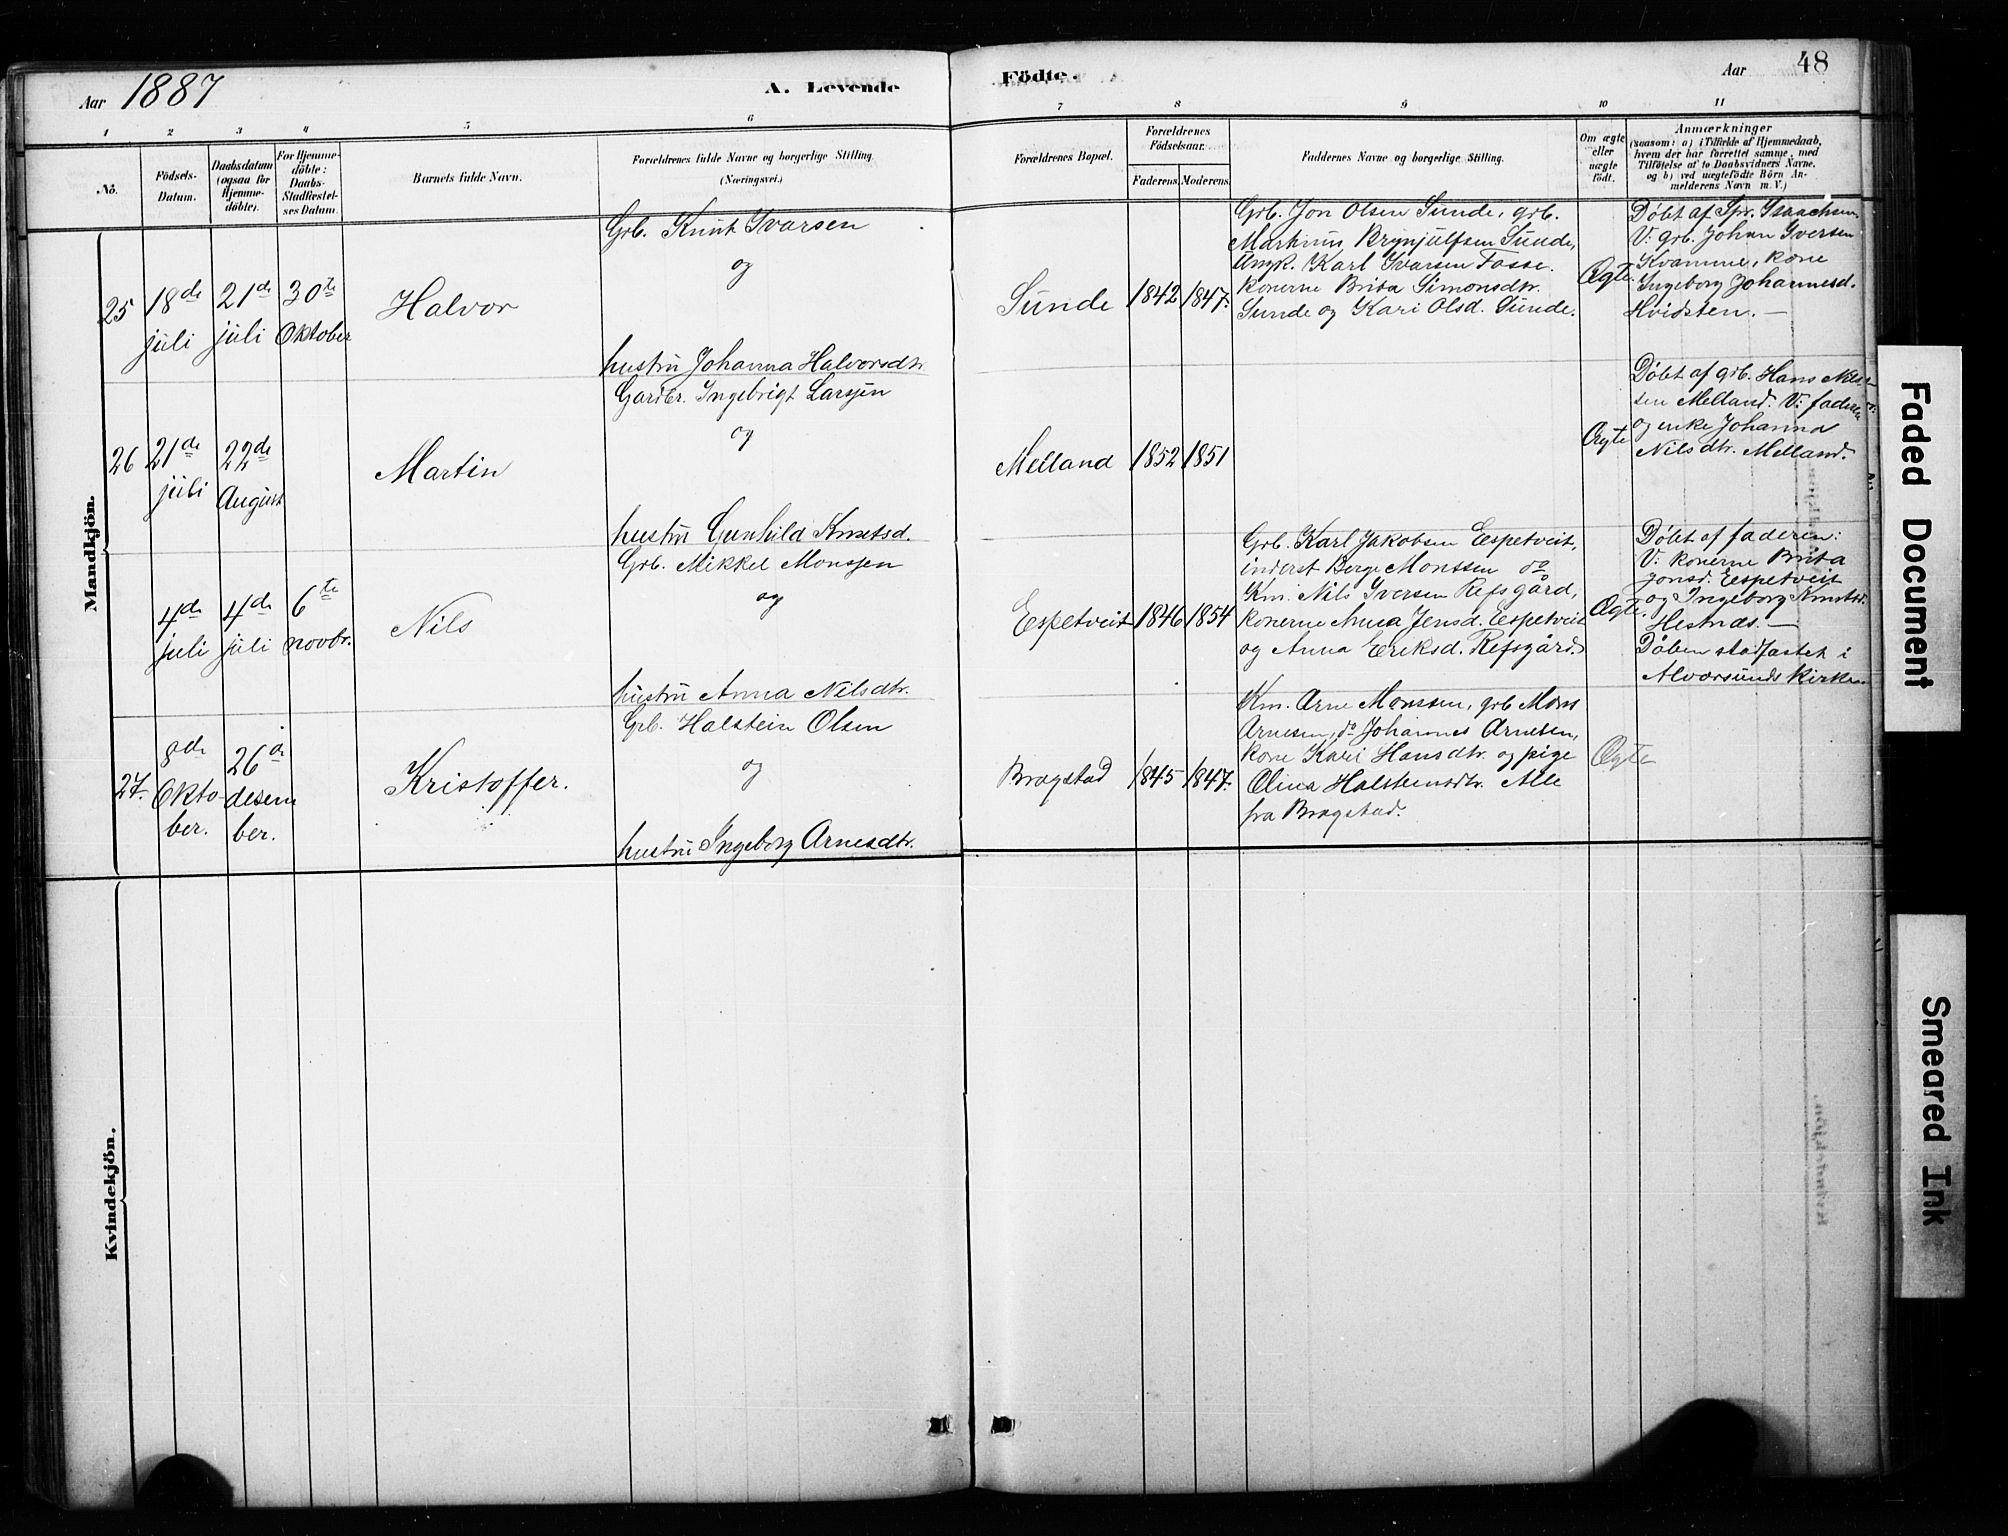 Aar 1887
A. Levende
Födte.
Aar 48
1
2
3
4
5
6
7
8
9
10
11
No.
Födsels-
Datum.
Daabsdatum
(ogsaa for
Hjemme-
döbte).
For Hjemme-
döbte:
Daabs-
Stadfæstel-
ses Datum
Barnets fulde Navn.
Forældrenes fulde Navne og borgerlige Stilling
(Næringsvei.)
Forældrenes Bopæl.
Forældrenes
Födselsaar.
Faderens.
Moderens.
Faddernes Navne og borgerlige Stilling.
Om ægte
eller
uægte
födt.
Anmærkninger
(saasom: a) i Tilfælde af Hjemmedaab,
hvem der har forrettet samme, med
Tilföielse af to Daabsvidners Navne.
og b) ved uægtefödte Börn An-
melderens Navn m. V.)
Mandkjön.
25
18de
juli
21de
juli
30te
Oktober
Halvor
Grb. Knut Ivarsen
og
hustru Johanna Halvorsdtr.
Sunde
1842
1847.
Grb. Jon Olsen Sunde, grb.
Martinus Brynjulfsen Sunde,
Ungk. Karl Ivarsen Fosse.
konerne Brita Simonsdtr.
Sunde og Kari Olsd. Sunde.
Ægte.
Döbt af Spr. Isaachsen.
V: grb. Johan Iversen
Kvamme, kone
Ingeborg Johannesd.
Hvidsten. —
26
21de
juli
22de
August
Martin
Gardbr. Ingebrigt Larsen
og
hustru Gunhild Knutsd.
Melland
1852
1851
Ægte
Döbt af grb. Hans Nils-
sen Melland. V: faderen
og enke Johanna
Nilsdtr. Melland.
4de
juli
4de
juli
6te
novbr.
Nils
Grb. Mikkel Monsen
og
hustru Anna Nilsdtr.
Espetveit
1846
1854
Grb. Karl Jakobsen Espetveit,
inderst Berge Monssen do
Km. Nils Iversen Refsgård,
konerne Anna Jensd. Espetveit
og Anna Eriksd. Refsgård.
Ægte.
Döbt af faderen:
V: konerne Brita
Jonsd. Espetveit
og Ingeborg Knutsd.
Hestnes. —
Dåben stadfæstet i
Alversunds kirke.
27.
8de
Okto-
ber.
26de
desem
ber.
Kristoffer.
Grb. Halstein Olsen
og
hustru Ingeborg Arnesdtr.
Bragstad
1845
1847.
Km. Arne Monssen, grb Mons
Arnesen, do Johannes Arnesen,
kone Kari Hansdtr. og pige
Olina Halsteinsdtr. Alle
fra Bragstad.
Ægte
Kvindekjön.
Faded Document
Smeared Ink